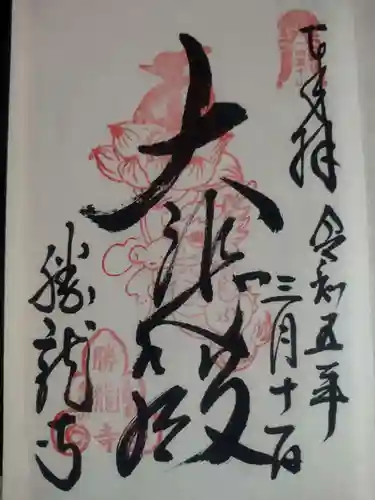 奉拝
令和五年
三月十一日
大悲殿
勝龍寺
勝龍寺